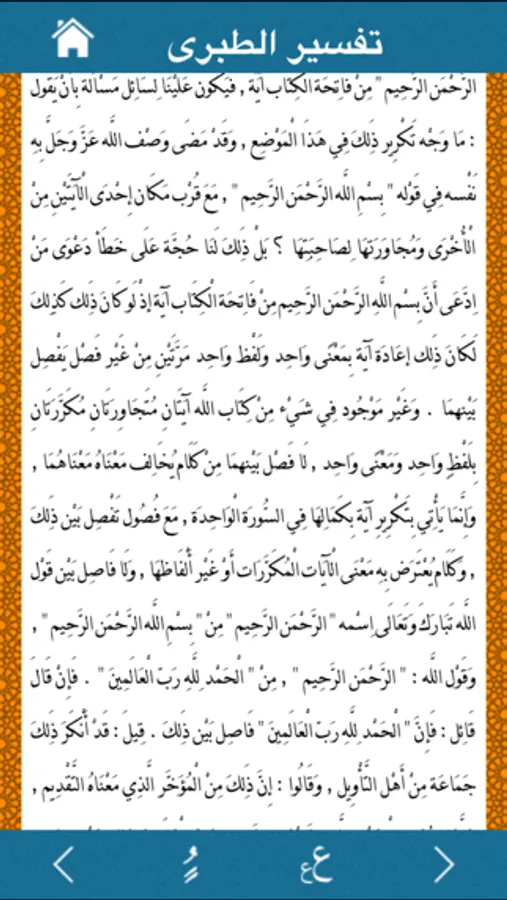 تفسير الطبرى
الرَّحْمَن الرَّحِيم" مِنْ فَاتِحَة الْكِتَاب آيَة , فَيَكُون عَلَيْنَا لِسَائِلٍ مَسْأَلَة بِأَنْ يَقُول
: مَا وَجْه تَكْرِير ذَلِكَ فِي هَذَا الْمَوْضِع , وَقَدْ مَضَى وَصْف اللَّه عَزَّ وَجَلَّ بِهِ
نَفْسه فِي قَوْله " بِسْمِ اللَّه الرَّحْمَن الرَّحِيم " , مَعَ قُرْب مَكَان إِحْدَى الْآيَتَيْنِ مِنْ
الْأُخْرَى وَمُجَاوَرَتهَا لِصَاحِبَتِهَا ؟ بَلْ ذَلِكَ لَنَا حُجَّة عَلَى خَطَأ دَعْوَى مَنْ
اِدَّعَى أَنَّ بِسْمِ اللَّهِ الرَّحْمَنِ الرَّحِيمِ مِنْ فَاتِحَة الْكِتَاب آيَة إِذْ لَوْ كَانَ ذَلِكَ كَذَلِكَ
لَكَانَ ذَلِكَ إِعَادَة آيَة بِمَعْنًى وَاحِد وَلَفْظ وَاحِد مَرَّتَيْنِ مِنْ غَيْر فَصْل يَفْصِل
بَيْنهمَا . وَغَيْر مَوْجُود فِي شَيْء مِنْ كِتَاب اللَّه آيَتَانِ مُتَجَاوِرَتَانِ مُكَرَّرَتَانِ
بِلَفْظٍ وَاحِد وَمَعْنًى وَاحِد , لَا فَصْل بَيْنهمَا مِنْ كَلَام يُخَالِف مَعْنَاهُ مَعْنَاهُمَا ,
وَإِنَّمَا يَأْتِي بِتَكْرِيرِ آيَة بِكَمَالِهَا فِي السُّورَة الْوَاحِدَة , مَعَ فُصُول تَفْصِل بَيْن ذَلِكَ
, وَكَلَام يُعْتَرَض بِهِ مَعْنَى الْآيَات الْمُكَرَّرَات أَوْ غَيْر أَلْفَاظهَا , وَلَا فَاصِل بَيْن قَوْل
اللَّه تَبَارَكَ وَتَعَالَى اِسْمه " الرَّحْمَن الرَّحِيم " مِنْ " بِسْمِ اللَّه الرَّحْمَن الرَّحِيم " ,
وَقَوْل اللَّه : " الرَّحْمَن الرَّحِيم " , مِنْ " الْحَمْد لِلَّهِ رَبّ الْعَالَمِينَ " . فَإِنْ قَالَ
قَائِل : فَإِنَّ " الْحَمْد لِلَّهِ رَبّ الْعَالَمِينَ " فَاصِل بَيْن ذَلِكَ . قِيلَ : قَدْ أَنْكَرَ ذَلِكَ
جَمَاعَة مِنْ أَهْل التَّأْوِيل , وَقَالُوا : إِنَّ ذَلِكَ مِنْ الْمُؤَخَّر الَّذِي مَعْنَاهُ التَّقْدِيم ,
عع